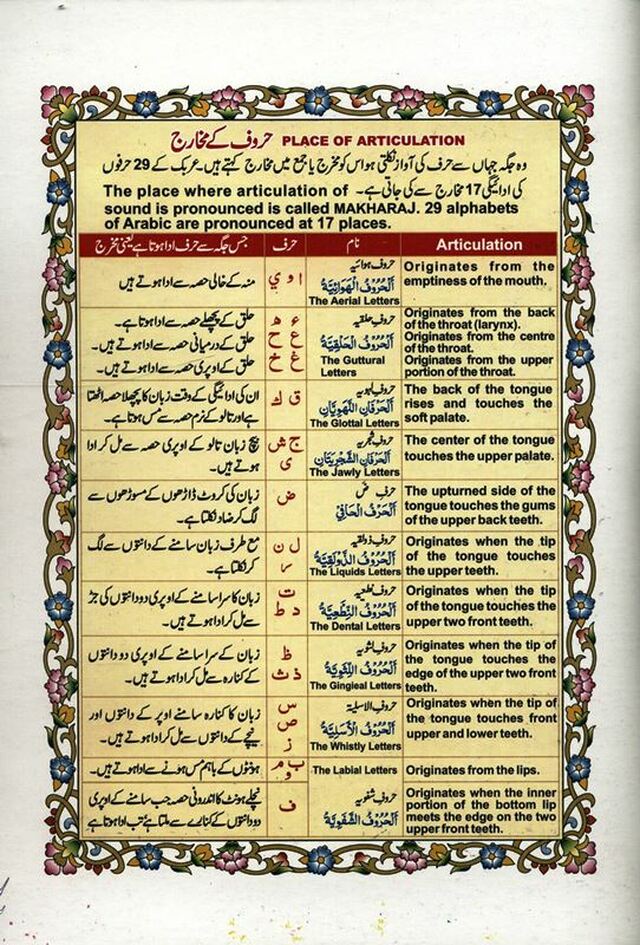 حروف کے مخارج PLACE OF ARTICULATION
وہ جگہ جہاں سے حرف کی آواز نکلتی ہو اس کو مخرج یا جمع میں مخارج کہتے ہیں۔ عربک کے 29 حرفوں
کی ادائیگی 17 مخارج سے کی جاتی ہے۔ The place where articulation of
sound is pronounced is called MAKHARAJ. 29 alphabets
of Arabic are pronounced at 17 places.
جس جگہ سے حرف ادا ہوتا ہے یعنی مخرج
حرف
نام
Articulation
منہ کے خالی حصہ سے ادا ہوتے ہیں
ا و ي
حروف ہوائیہ
اَلْحُرُوْفُ الْهَوَائِيَّةُ
The Aerial Letters
Originates from the
emptiness of the mouth.
حلق کے پچھلے حصہ سے ادا ہوتا ہے۔
حلق کے درمیانی حصہ سے ادا ہوتے ہیں۔
حلق کے اوپری حصہ سے ادا ہوتے ہیں۔
ء ھ
ع ح
غ خ
حروف حلقیہ
اَلْحُرُوْفُ الْحَلْقِيَّةُ
The Guttural
Letters
Originates from the back
of the throat (larynx).
Originates from the centre
of the throat.
Originates from the upper
portion of the throat.
ان کی ادائیگی کے وقت زبان کا پچھلا حصہ اٹھتا
ہے اور تالو کے نرم حصہ سے مس ہوتا ہے۔
ق ك
حروف لہویہ
اَلْحَرْفَانِ اللَّهَوِيَّانِ
The Glottal Letters
The back of the tongue
rises and touches the
soft palate.
بیچ زبان تالو کے اوپری حصہ سے مل کر ادا
ہوتے ہیں۔
ج ش
ی
حروف شجریہ
اَلْحَرْفَانِ الشَّجْرِيَّتَانِ
The Jawly Letters
The center of the tongue
touches the upper palate.
زبان کی کروٹ ڈاڑھوں کے مسوڑھوں سے
لگ کر ضاد نکلتا ہے۔
ض
حرف ض
اَلْحَرْفُ الْحَافِيُّ
The upturned side of the
tongue touches the gums
of the upper back teeth.
مع طرف زبان سامنے کے دانتوں سے لگ
کر نکلتا ہے۔
ل ن
ر
حروف ذولقیہ
اَلْحُرُوْفُ الذَّوْلَقِيَّةُ
The Liquids Letters
Originates when the tip
of the tongue touches
the upper teeth.
زبان کا سرا سامنے کے اوپری دو دانتوں کی جڑ
سے مل کر ادا ہوتے ہیں۔
ت
د ط
حروف نطعیہ
اَلْحُرُوْفُ النِّطْعِيَّةُ
The Dental Letters
Originates when the tip
of the tongue touches the
upper two front teeth.
زبان کے سرا سامنے کے اوپری دو دانتوں
کے کنارہ سے مل کر ادا ہوتے ہیں۔
ظ
ذ ث
حروف لثویہ
اَلْحُرُوْفُ اللَّثَوِيَّةُ
The Gingieal Letters
Originates when the tip of
the tongue touches the
edge of the upper two front
teeth.
زبان کا کنارہ سامنے اوپر کے دانتوں اور
نیچے کے دانتوں سے مل کر ادا ہوتے ہیں۔
س
ص
ز
حروف الاسلیۃ
اَلْحُرُوْفُ الْأَسَلِيَّةُ
The Whistly Letters
Originates when the tip of
the tongue touches front
upper and lower teeth.
ہونٹوں کے باہم مس ہونے سے ادا ہوتے ہیں۔
ب م
و
The Labial Letters
Originates from the lips.
نچلے ہونٹ کا اندرونی حصہ جب سامنے کے اوپری
دو دانتوں کے کنارے سے ملتا ہے تب ادا ہوتا ہے
ف
حروف شفویہ
اَلْحُرُوْفُ الشَّفَوِيَّةُ
Originates when the inner
portion of the bottom lip
meets the edge on the two
upper front teeth.